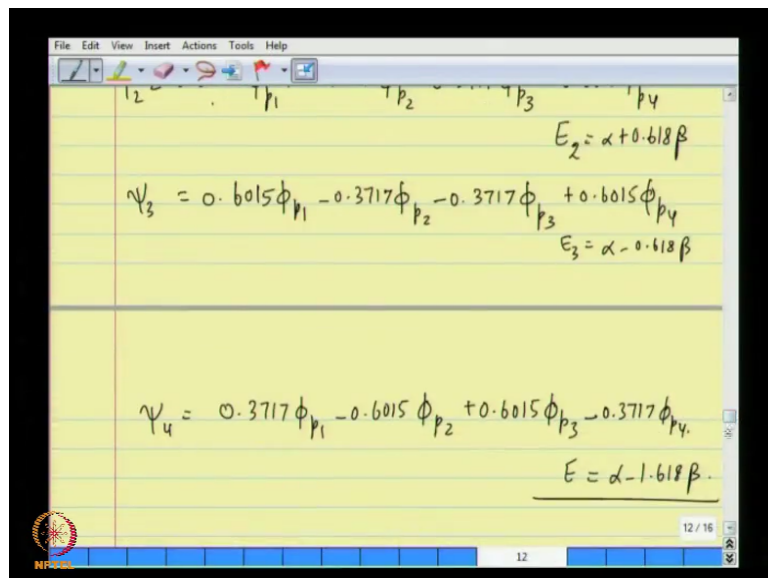 File Edit View Insert Actions Tools Help
E₂ = α + 0.618β
Ψ₃ = 0.6015ϕp₁ - 0.3717ϕp₂ - 0.3717ϕp₃ + 0.6015ϕp₄
E₃ = α - 0.618β
Ψ₄ = 0.3717ϕp₁ - 0.6015ϕp₂ + 0.6015ϕp₃ - 0.3717ϕp₄.
E = α - 1.618β.
12 / 16
12
NPTEL